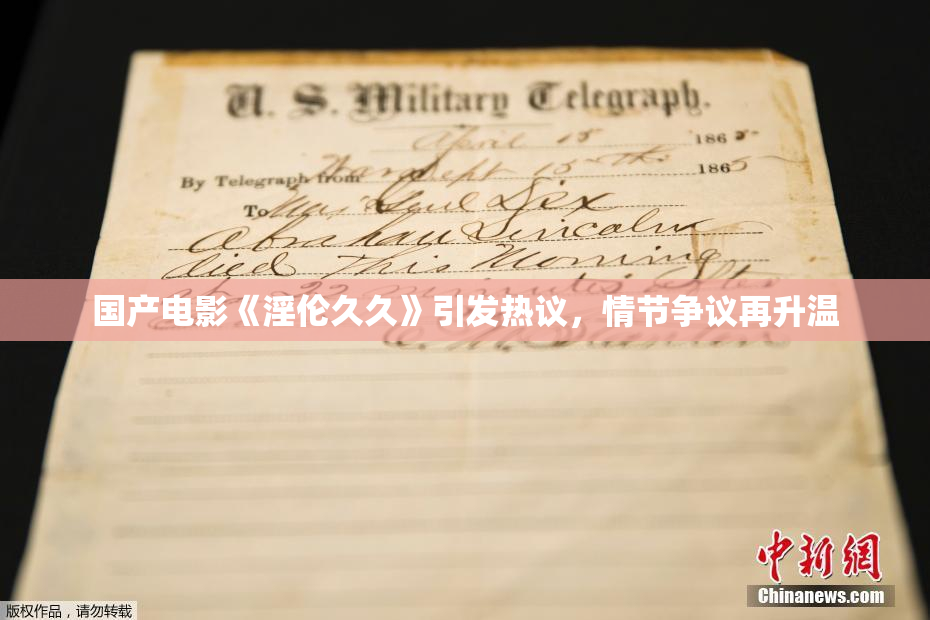 U. S. Military Telegraph.
April 15 1865
By Telegraph from War Dept 15th 1865
To Maj Genl Dix
Abraham Lincoln
died This Morning
at 22 minutes after
国产电影《淫伦久久》引发热议，情节争议再升温
E. M. Stanton
中新网
Chinanews.com
版权作品，请勿转载